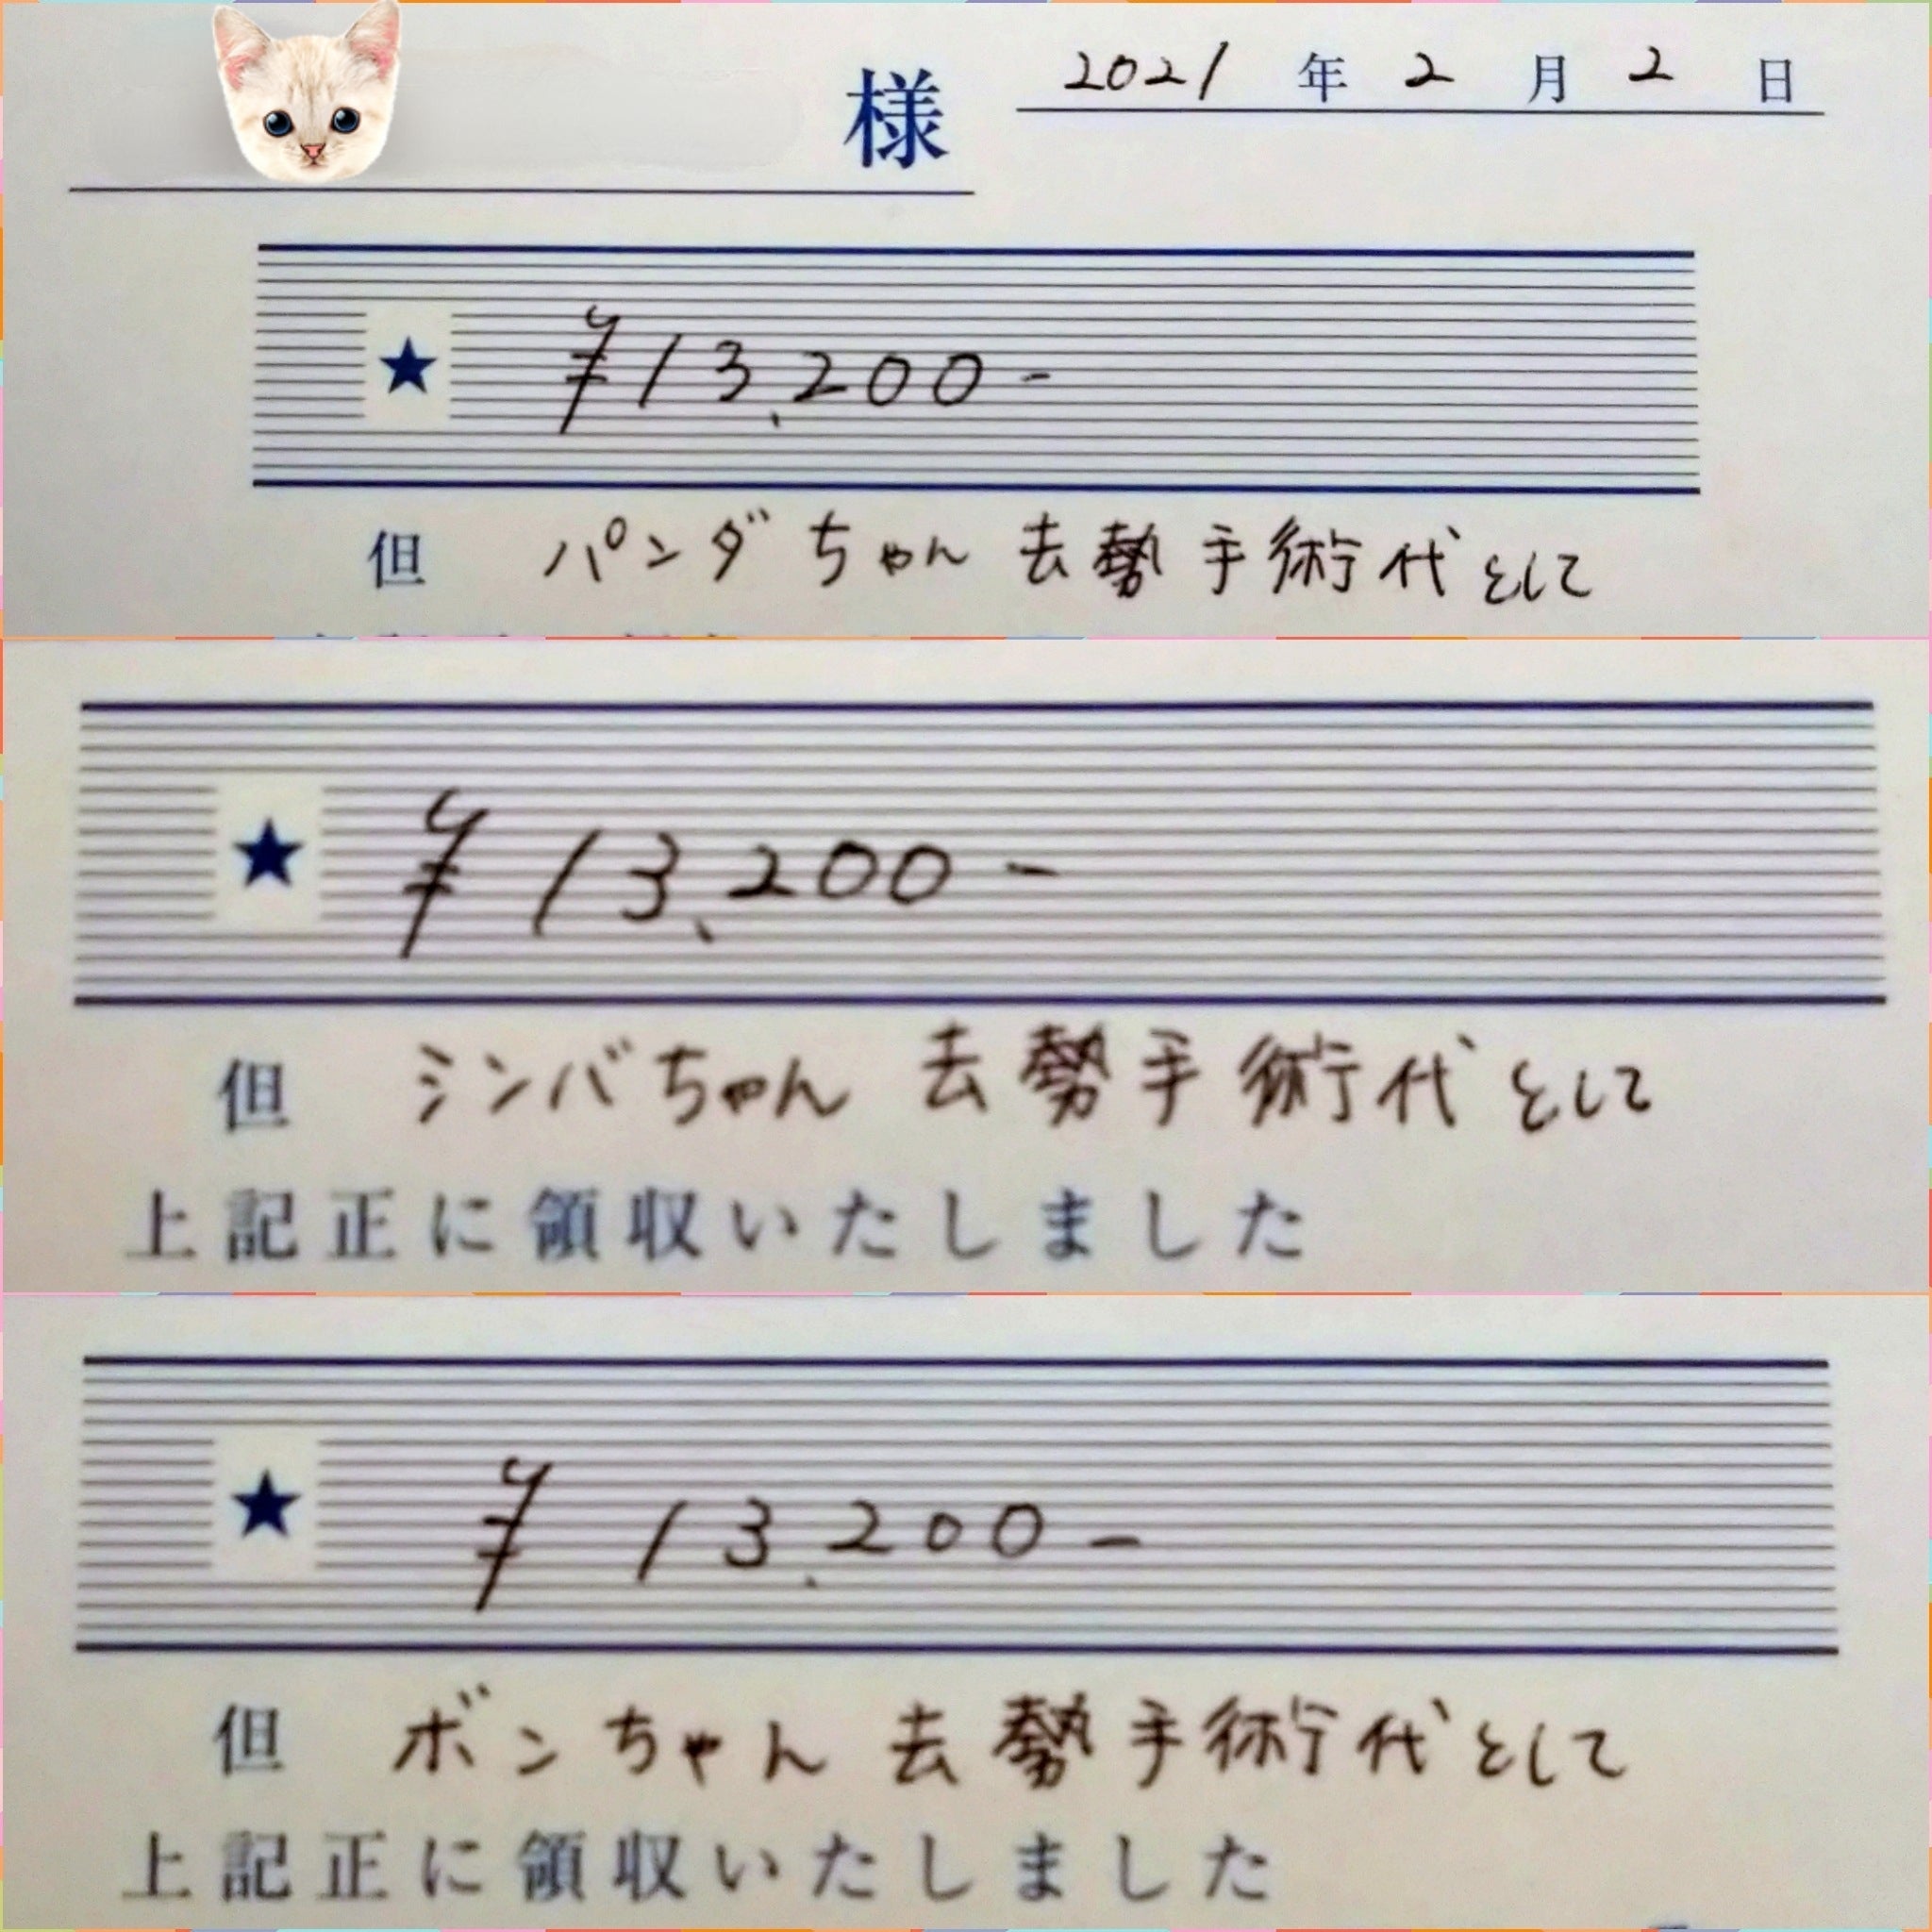 様 2021年2月2日
★ ¥13,200-
但 パンダちゃん 去勢手術代として
★ ¥13,200-
但 シンバちゃん 去勢手術代として
上記正に領収いたしました
★ ¥13,200-
但 ボンちゃん 去勢手術代として
上記正に領収いたしました